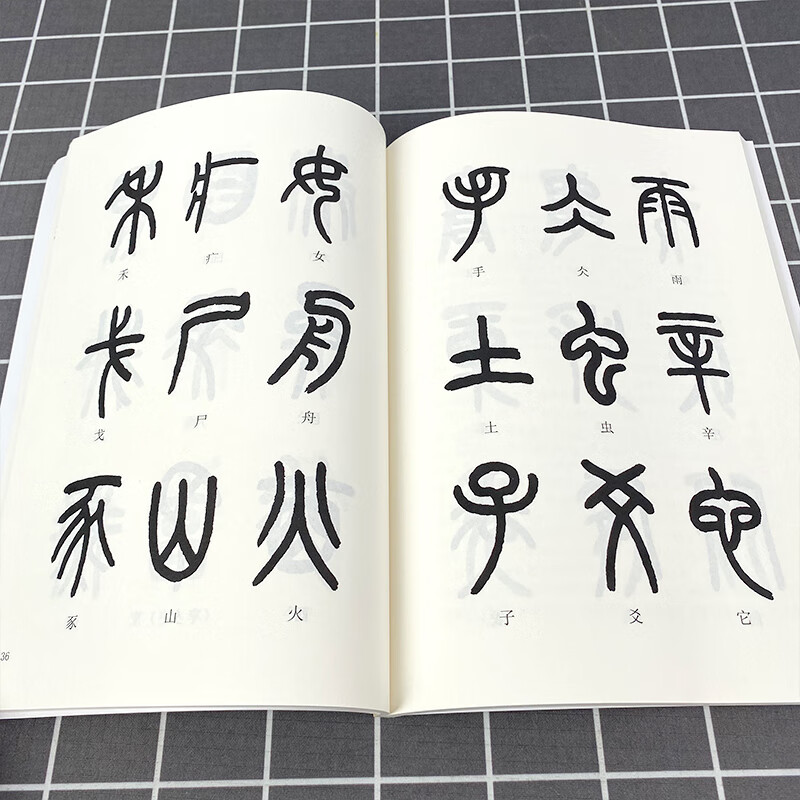 禾 疒 女
戈 尸 舟
豕 山 火
36
手 仌 雨
土 虫 辛
子 爻 它